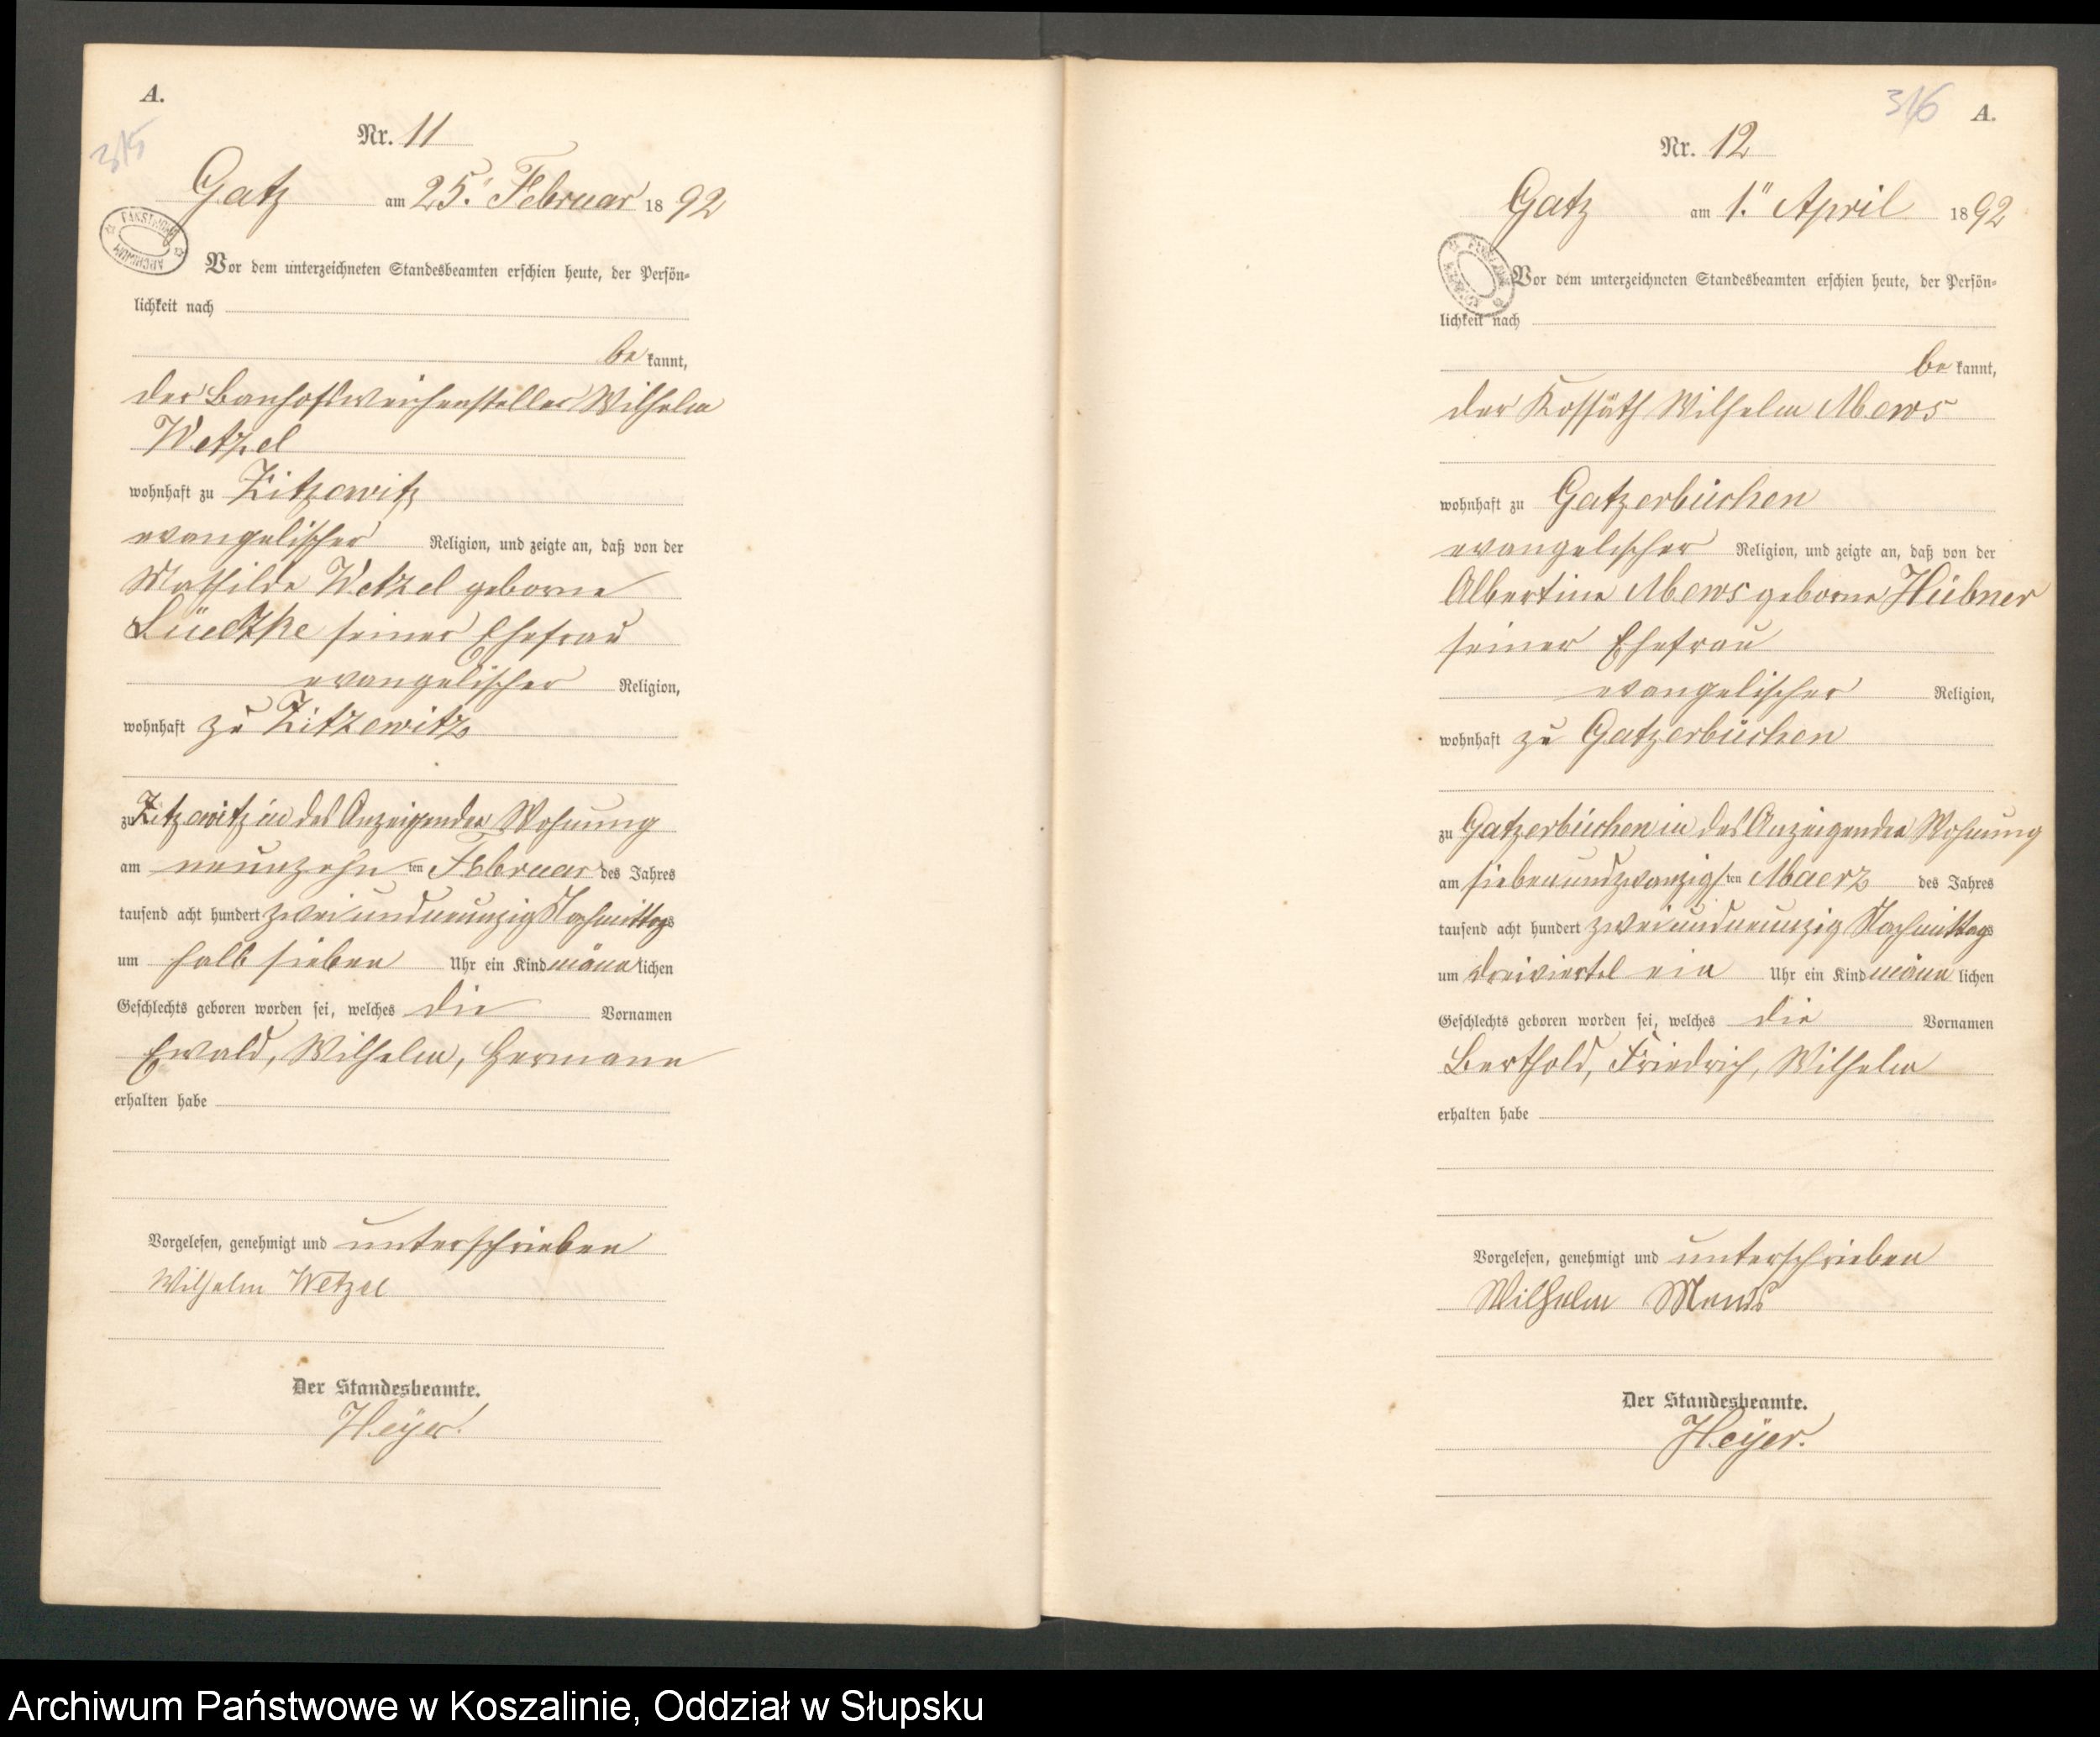 A.
315
Nr. 11
Gatz am 25. Februar 1892
Vor dem unterzeichneten Standesbeamten erschien heute, der Persön-
lichkeit nach
bekannt,
der Banhofsweichensteller Wilhelm
Wetzel
wohnhaft zu Zitzewitz
evangelischer Religion, und zeigte an, daß von der
Mathilde Wetzel geborne
Lüedtke seiner Ehefrau
evangelischer Religion,
wohnhaft zu Zitzewitz
zu Zitzewitz in des Anzeigenden Wohnung
am neunzehnten Februar des Jahres
tausend acht hundert zweiundneunzig Nachmittags
um halb sieben Uhr ein Kind männlichen
Geschlechts geboren worden sei, welches die Vornamen
Ewald, Wilhelm, Hermann
erhalten habe
Vorgelesen, genehmigt und unterschrieben
Wilhelm Wetzel
Der Standesbeamte.
Heyer.
316 A.
Nr. 12
Gatz am 1. April 1892
Vor dem unterzeichneten Standesbeamten erschien heute, der Persön-
lichkeit nach
bekannt,
der Kossäth Wilhelm Mews
wohnhaft zu Gatzerbüchen
evangelischer Religion, und zeigte an, daß von der
Albertine Mews geborne Hübner
seiner Ehefrau
evangelischer Religion,
wohnhaft zu Gatzerbüchen
zu Gatzerbüchen in des Anzeigenden Wohnung
am siebenundzwanzigsten Maerz des Jahres
tausend acht hundert zweiundneunzig Nachmittags
um dreiviertel ein Uhr ein Kind männlichen
Geschlechts geboren worden sei, welches die Vornamen
Berthold, Friedrich, Wilhelm
erhalten habe
Vorgelesen, genehmigt und unterschrieben
Wilhelm Mews
Der Standesbeamte.
Heyer.
Archiwum Państwowe w Koszalinie, Oddział w Słupsku